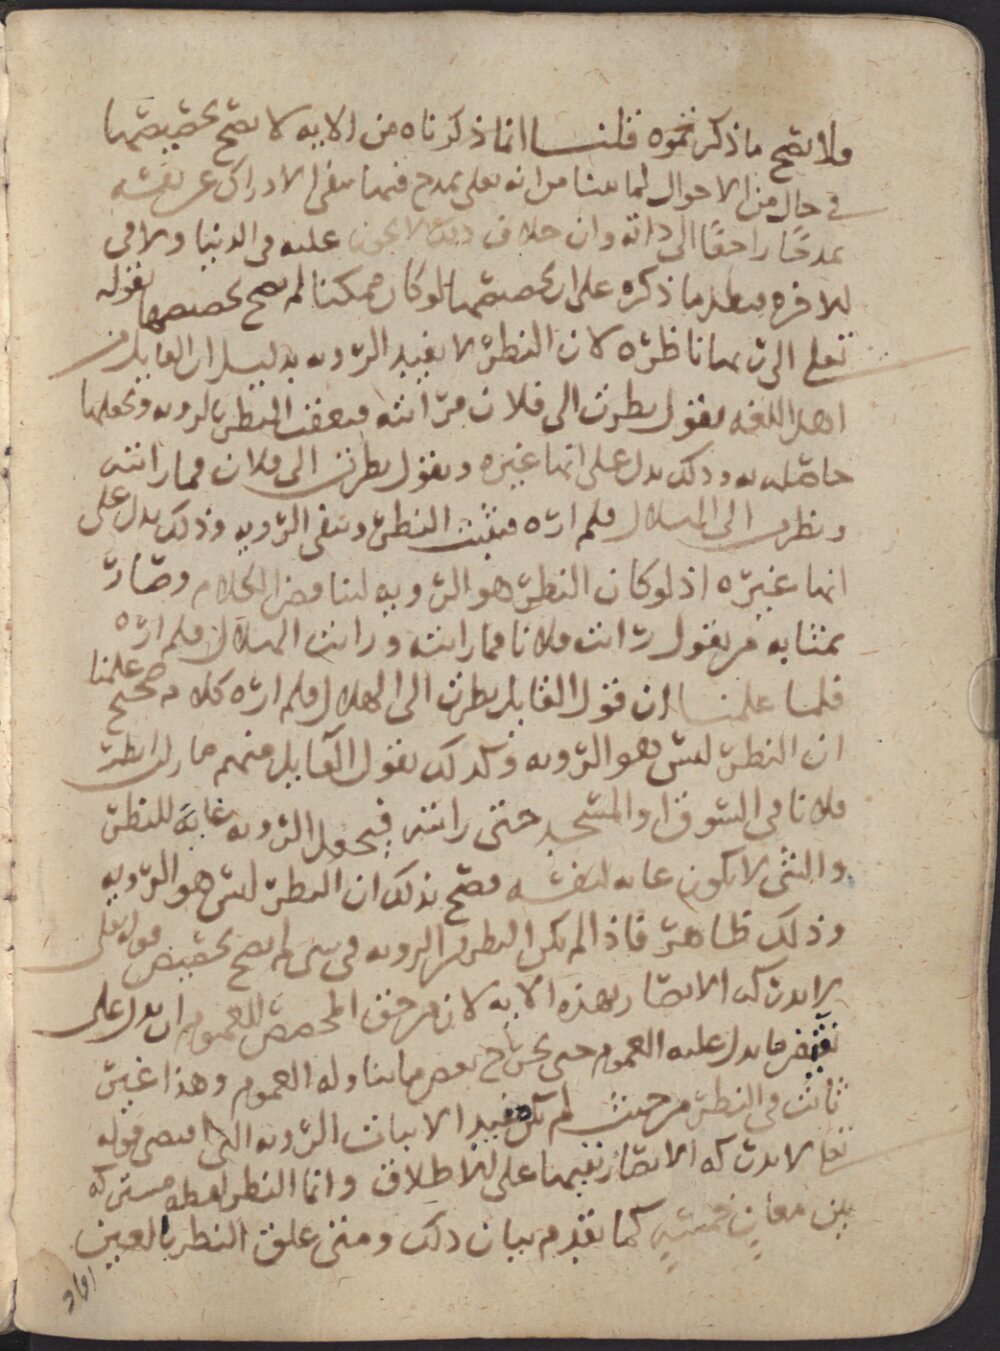 فلا يصح ما ذكرتموه قلنا انما ذكرناه من الايه لا يصح تخصيصها
في حال من الاحوال لما بينا من انه تعلى تمدح فيها بنفي الادراك عن نفسه
تمدحًا راجعًا الى ذاته وان خلاف ذلك لا يجوز عليه في الدنيا ولا في
الاخره فبطل ما ذكره على ان تخصيصها لو كان ممكنا لم يصح تخصيصها بقوله
تعلى الى ربها ناظره لان النظر لا يفيد الرويه بدليل ان القايل من
اهل اللغه يقول نظرت الى فلان فرأيته فيعقب النظر بالرويه ويجعلها
حاصله به وذلك يدل على انها غيره ويقول نظرت الى فلان فما رايته
ونظرت الى الهلال فلم اره فيثبت النظر وينفي الرويه وذلك يدل على
انها غيره اذ لو كان النظر هو الرويه لتناقض الكلام وصار
بمثابه من يقول رايت فلانا فما رايته ورايت الهلال فلم اره
فلما علمنا ان قول القايل نظرت الى الهلال فلم اره كلام صحيح علمنا
ان النظر ليس هو الرويه وكذلك يقول القايل منهم ما زلت انظر
فلانا في السوق او المسجد حتى رايته فيجعل الرويه غاية للنظر
والشي لا يكون غايه لنفسه فصح بذلك ان النظر ليس هو الرويه
وذلك ظاهر فاذا لم يكن النظر من الرويه في شي لم يصح تخصيص قوله تعلى
لا تدركه الابصار بهذه الايه لان من حق المخصص للعموم ان يدل على
نقيض ما يدل عليه العموم حتى يخرج بعض ما يتناوله العموم وهذا غير
ثابت في النظر من حيث لم يكن مفيد الاثبات الرويه التي اقتضى قوله
تعلى لا تدركه الابصار نفيها على الاطلاق وانما النظر لفظه مشتركه
بين معانٍ خمسةٍ كما تقدم بيان ذلك ومتى علق النظر بالعين
افاد